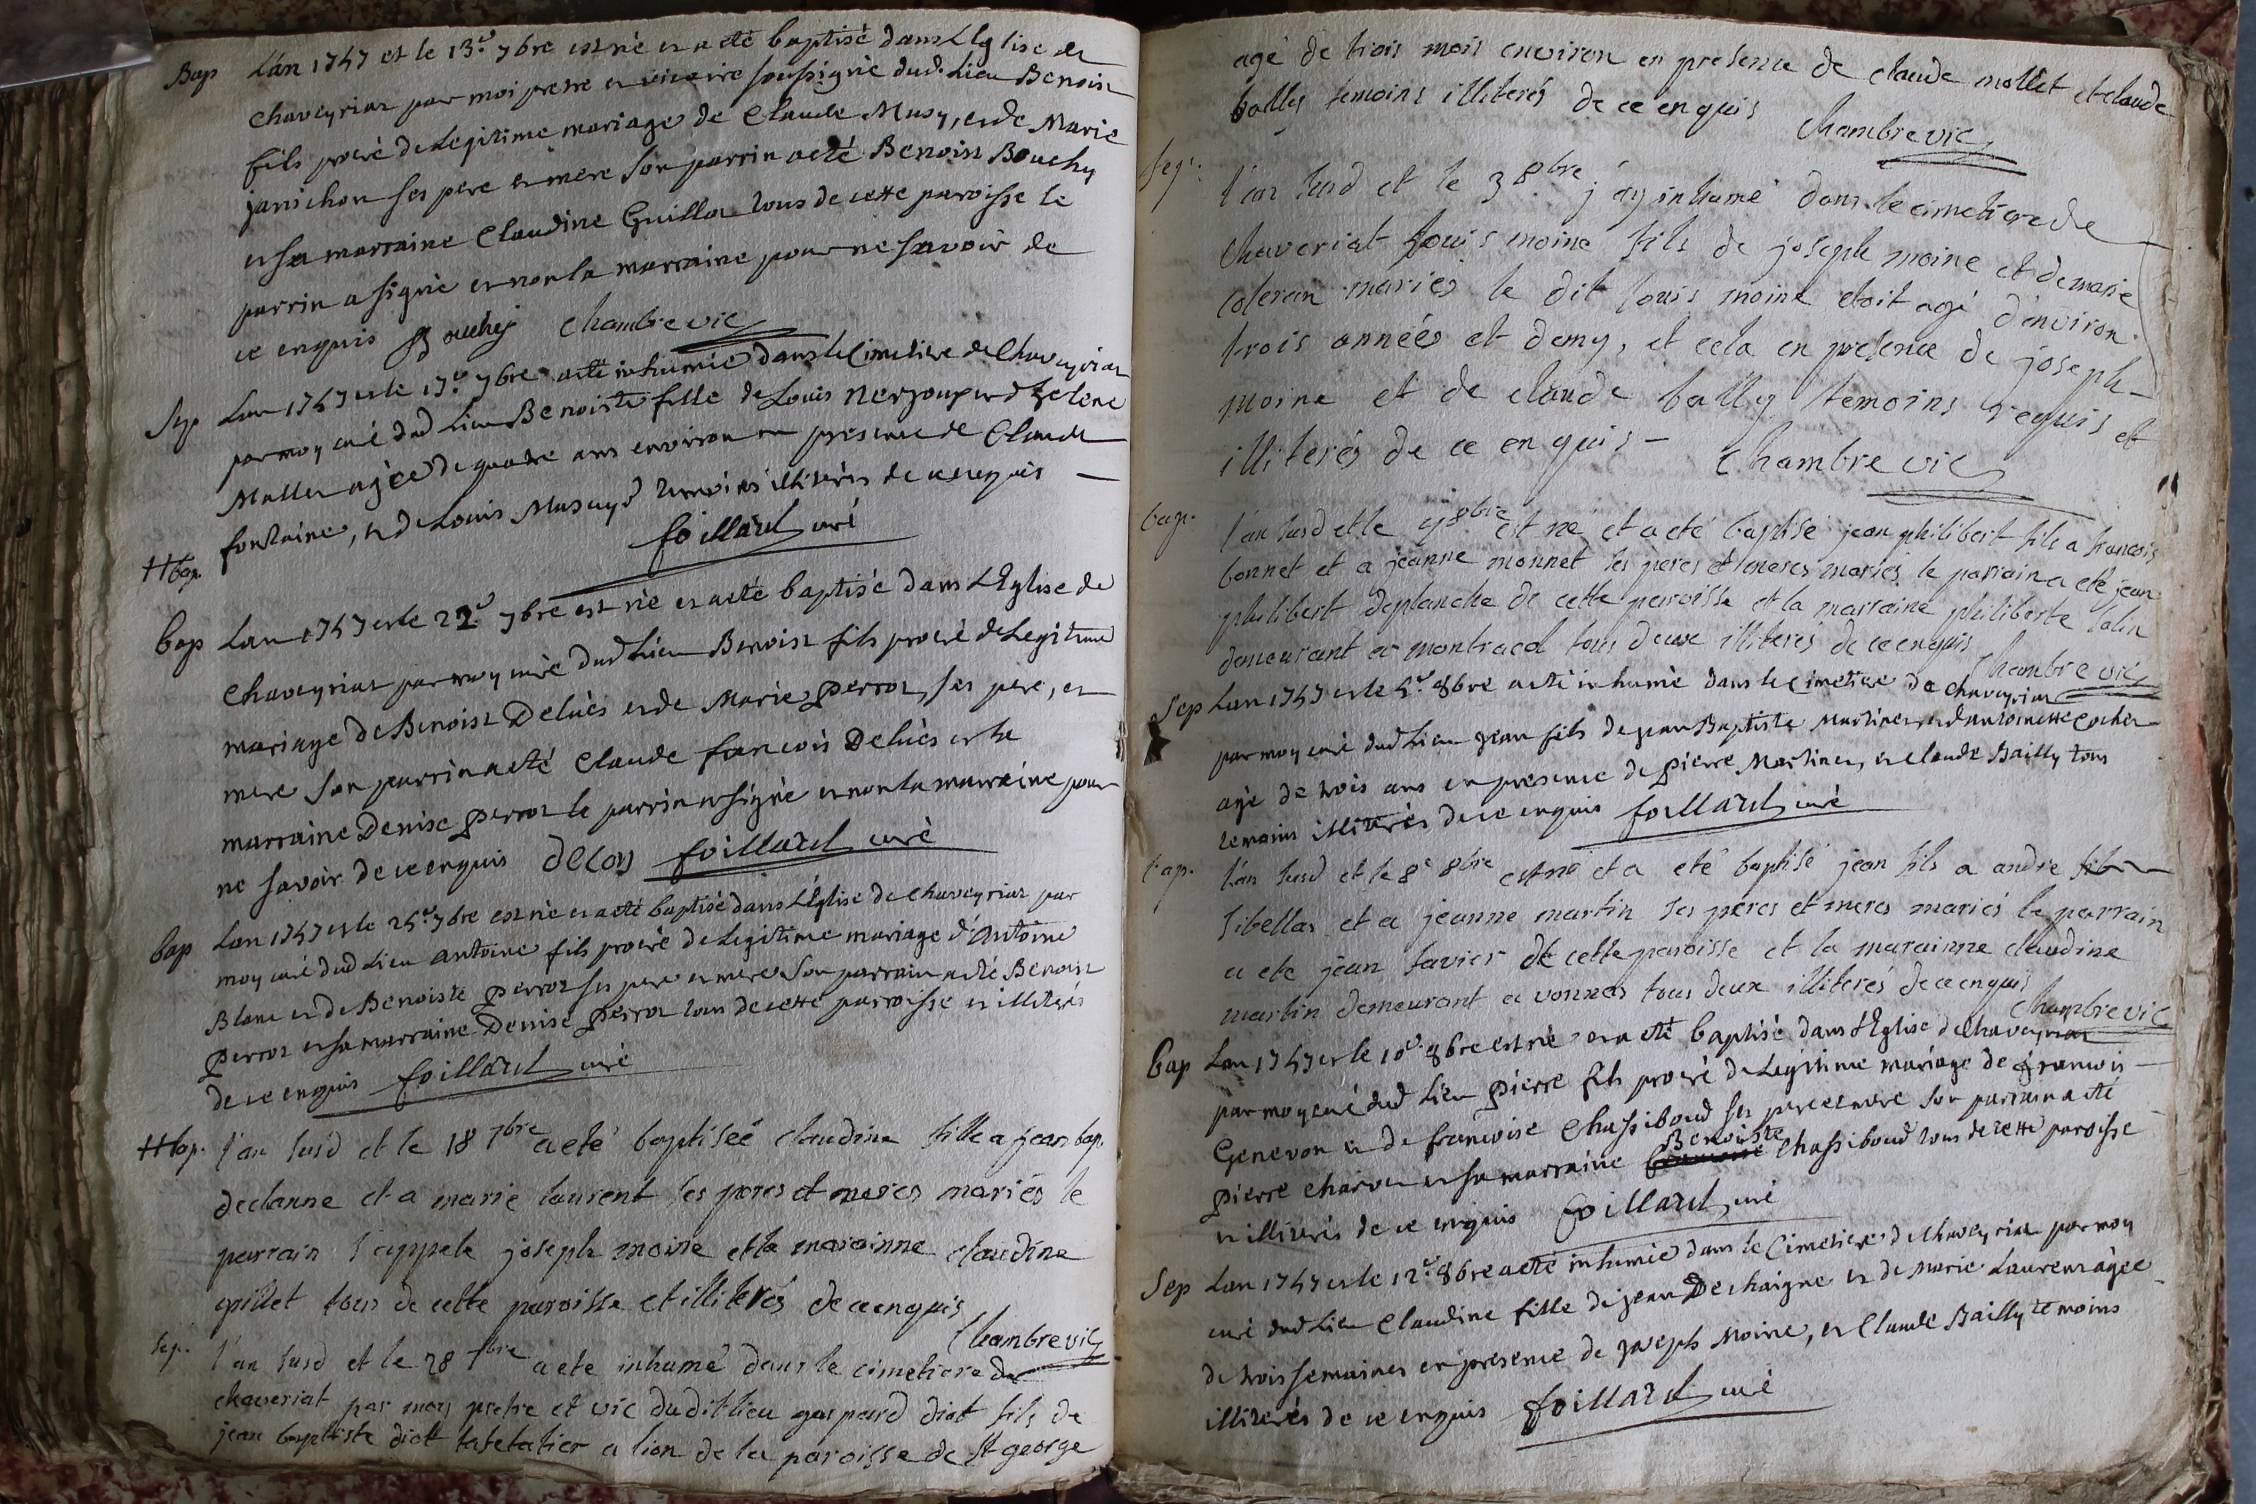 Bap L'an 1747 et le 13e 7bre est né et a eté baptisé dans L'Eglise de
Chaveyriat par moi pretre et vicaire soussigné dud. Lieu Benoist
fils procréé de Legitime mariage de Claude Musy, et de Marie
janichon ses pere et mere son parrin a eté Benoist Bouchy
et sa marraine Claudine Guillot tous de cette paroisse le
parrin a signé et non la marraine pour ne savoir de
ce enquis Bouchy Chambre vic
Sep Lan 1747 et le 17e 7bre a eté inhumée dans le Cimetiere de Chaveyriat
par moy curé dud Lieu Benoiste fille de Louis et d helene
Mallet agée de quatre ans environ en presence de Claude
fontaine, et de Louis temoins illiterés de ce enquis
foillard curé
++ bap.
bap Lan 1747 et le 22e 7bre est né et a eté baptisé dans L'Eglise de
Chaveyriat par moy curé dud Lieu Benoist fils procréé de Legitime
mariage de Benoist Deliés et de Marie perrot, ses pere, et
mere son parrin a eté Claude francois Deliés et sa
marraine Denise perrot le parrin a signé et non la marraine pour
ne savoir de ce enquis foillard curé
bap Lan 1747 et le 25e 7bre est né et a eté baptisé dans L'Eglise de Chaveyriat par
moy curé dud Lieu antoine fils procréé de Legitime mariage d'antoine
Blanc et de Benoiste perrot ses pere et mere son parrain a eté Benoist
perrot et sa marraine Denise perrot tous de cette parroisse et illiterés
de ce enquis foillard curé
++ bap. l'an susd et le 18 7bre a eté baptiseé claudine fille a jean bap.
dechanne et a marie laurent ses peres et meres mariés le
parrain s'appele joseph moine et la marainne claudine
grillet tous de cette paroisse et illiterés de ce enquis
Chambre vic
Sep. l'an susd et le 28 7bre a ete inhumé dans le cimetiere de
chaveriat par moy pretre et vic dudit lieu gaspard diot fils de
jean baptiste diot tafetatier a lion de la paroisse de St george
agé de trois mois environ en presence de claude mollet et claude
bally temoins illiterés de ce enquis Chambre vic
Sep. l'an susd et le 3 8bre j'ay inhumé dans le cimetiere de
chaveriat louis moine fils de joseph moine et de marie
coleran mariés le dit louis moine etoit agé d'environ
trois années et demy, et cela en presence de joseph
moine et de claude bally temoins requis et
illiterés de ce enquis - Chambre vic
bap. l'an susd et le 8bre est né et a eté baptisé jean philibert fils a francois
bonnet et a jeanne monnet ses peres et meres mariés le parrain a eté jean
philibert deplanche de cette paroisse et la marraine philiberte
demeurant a montracol tous deux illiterés de ce enquis
Chambre vic
Sep Lan 1747 et le 5e 8bre a eté inhumé dans le cimetiere de chaveyriat
par moy curé dud Lieu jean fils de jean Baptiste Martinet et d'antoinette Cochet
agé de trois ans en presence de pierre Martinet, et claude Bailly tous
temoins illiterés de ce enquis foillard curé
bap. l'an susd et le 8e 8bre est né et a eté baptisé jean fils a andre
sibellas et a jeanne martin ses peres et meres mariés le parrain
a ete jean tavier de cette paroisse et la marainne claudine
martin demeurant a vonnas tous deux illiterés de ce enquis
Chambre vic
bap Lan 1747 et le 10e 8bre est né et a eté baptisé dans L'Eglise de Chaveyriat
par moy curé dud Lieu pierre fils procréé de Legitime mariage de francois
Genevon et de francoise Chassiboud ses pere et mere son parrain a eté
pierre charvet et sa marraine Benoiste Chassiboud tous de cette paroisse
et illiterés de ce enquis foillard curé
Sep Lan 1747 et le 12e 8bre a eté inhumée dans le Cimetiere de Chaveyriat par moy
curé dud Lieu Claudine fille de jean Dechaigne et de Marie Laurent agée
de trois semaines en presence de joseph Moine, et Claude Bailly temoins
illiterés de ce enquis foillard curé